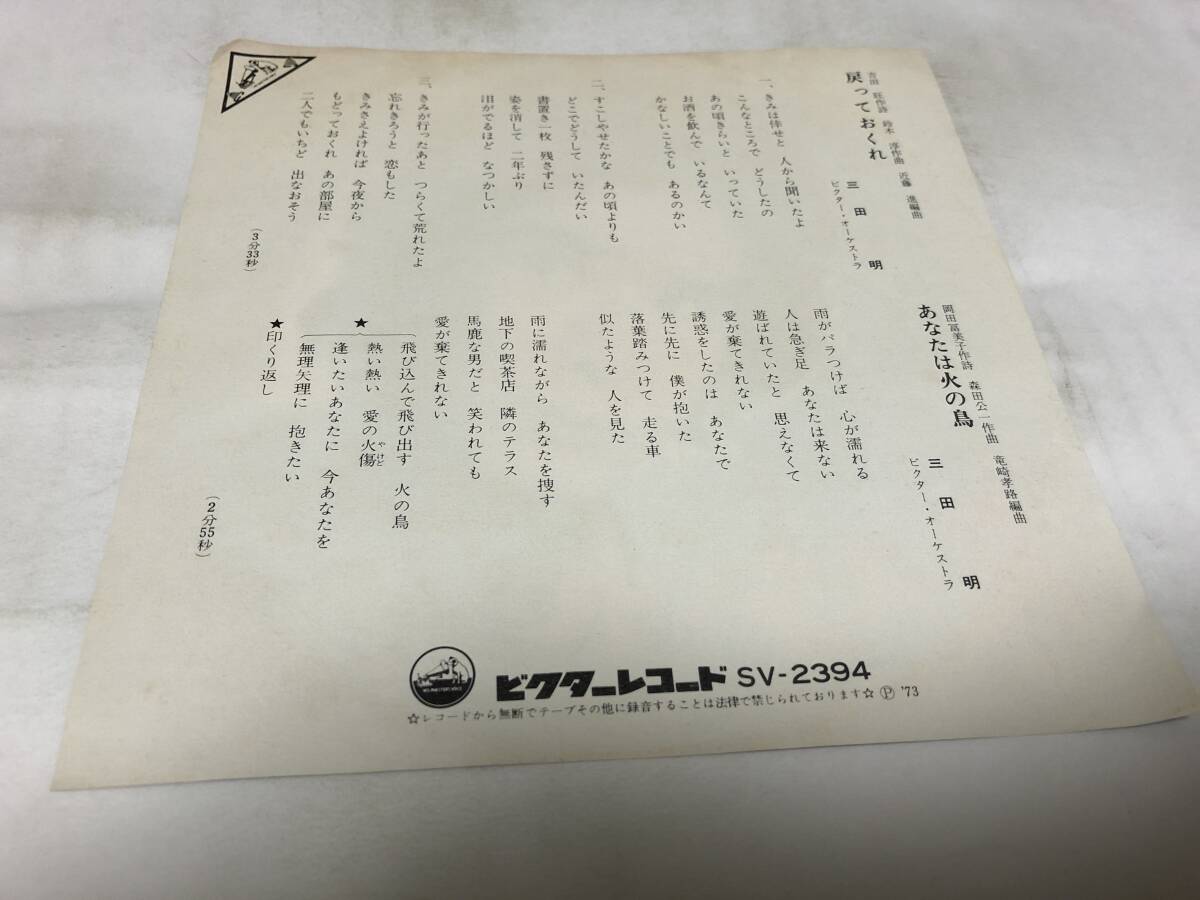 戻っておくれ
吉田 旺作詩 鈴木 淳作曲 近藤 進編曲
三田 明
ビクター・オーケストラ
一、きみは倖せと 人から聞いたよ
こんなところで どうしたの
あの頃きらいと いっていた
お酒を飲んで いるなんて
かなしいことでも あるのかい
二、すこしやせたかな あの頃よりも
どこでどうして いたんだい
書置き一枚 残さずに
姿を消して 二年ぶり
泪がでるほど なつかしい
三、きみが行ったあと つらくて荒れたよ
忘れきろうと 恋もした
きみさえよければ 今夜から
もどっておくれ あの部屋に
二人でもいちど 出なおそう
(3分33秒)
岡田冨美子作詩 森田公一作曲 竜崎孝路編曲
あなたは火の鳥
三田 明
ビクター・オーケストラ
雨がパラつけば 心が濡れる
人は急ぎ足 あなたは来ない
遊ばれていたと 思えなくて
愛が棄てきれない
誘惑をしたのは あなたで
先に先に 僕が抱いた
落葉踏みつけて 走る車
似たような 人を見た
雨に濡れながら あなたを捜す
地下の喫茶店 隣のテラス
馬鹿な男だと 笑われても
愛が棄てきれない
★
飛び込んで飛び出す 火の鳥
熱い熱い 愛の火傷
やけど
逢いたいあなたに 今あなたを
無理矢理に 抱きたい
★印くり返し
(2分55秒)
ビクターレコード SV-2394
☆レコードから無断でテープその他に録音することは法律で禁じられております☆ Ⓟ '73
"HIS MASTER'S VOICE"